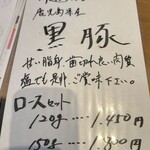 鹿児島県産
黒豚
甘い脂身、歯切れ良い肉質
塩でも是非、ご賞味下さい。
ロースセット
120g……1,450円